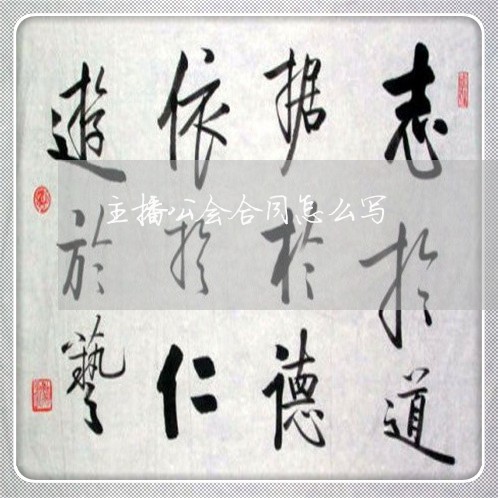 志於道
据於德
依於仁
遊於藝
主播公会合同怎么写